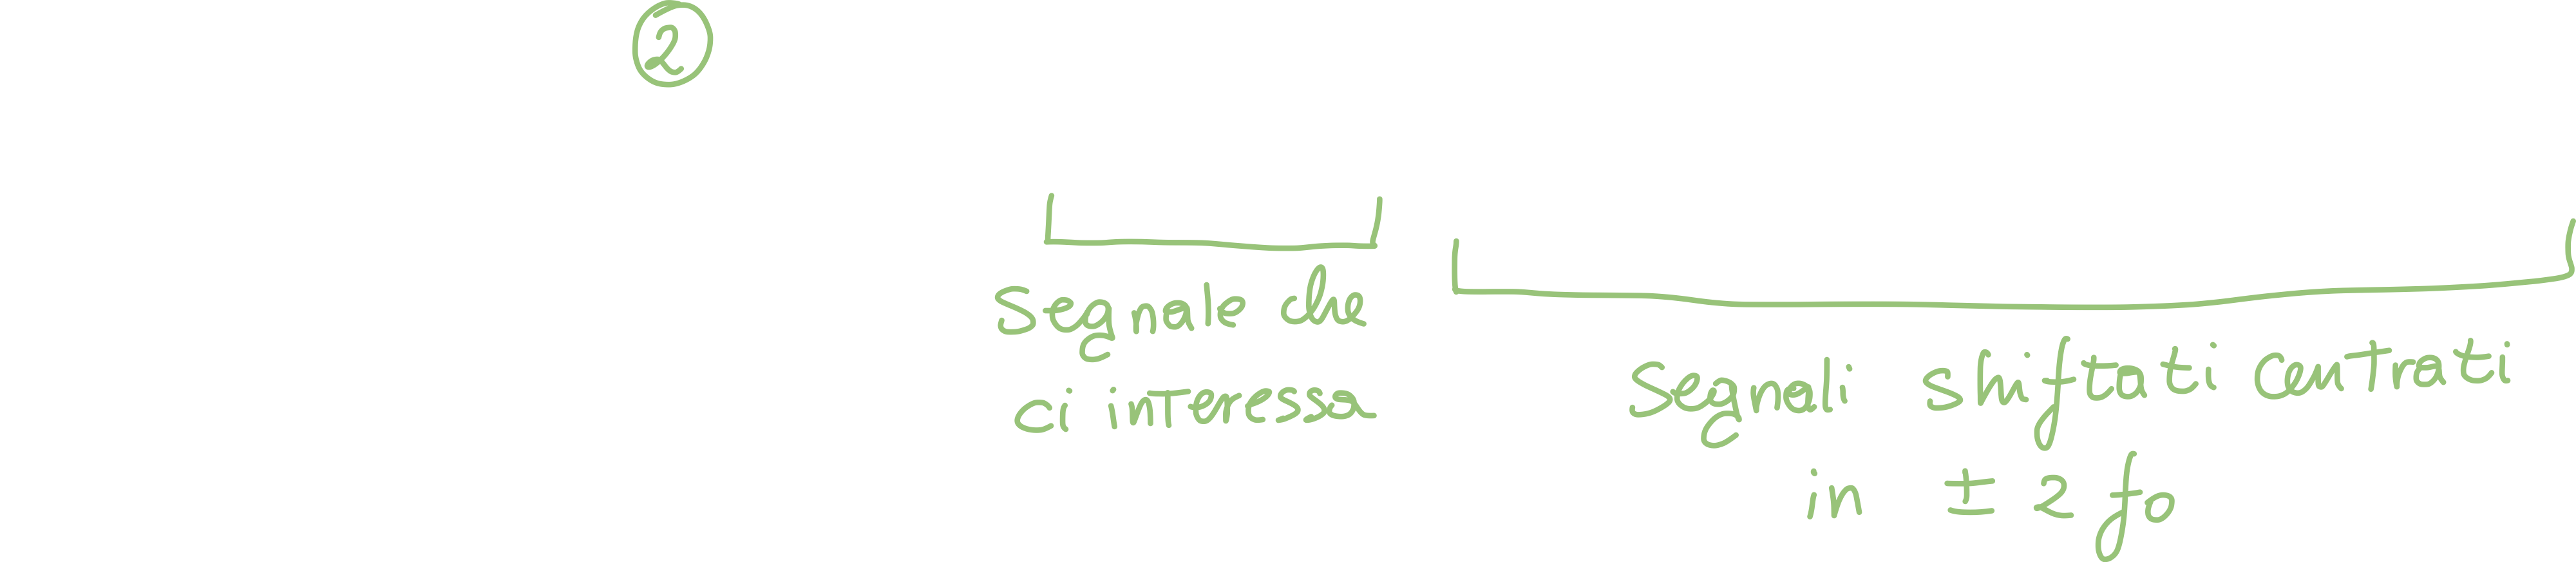 2
Segnale che
ci interessa
Segnali shiftati centrati
in ± 2 fo